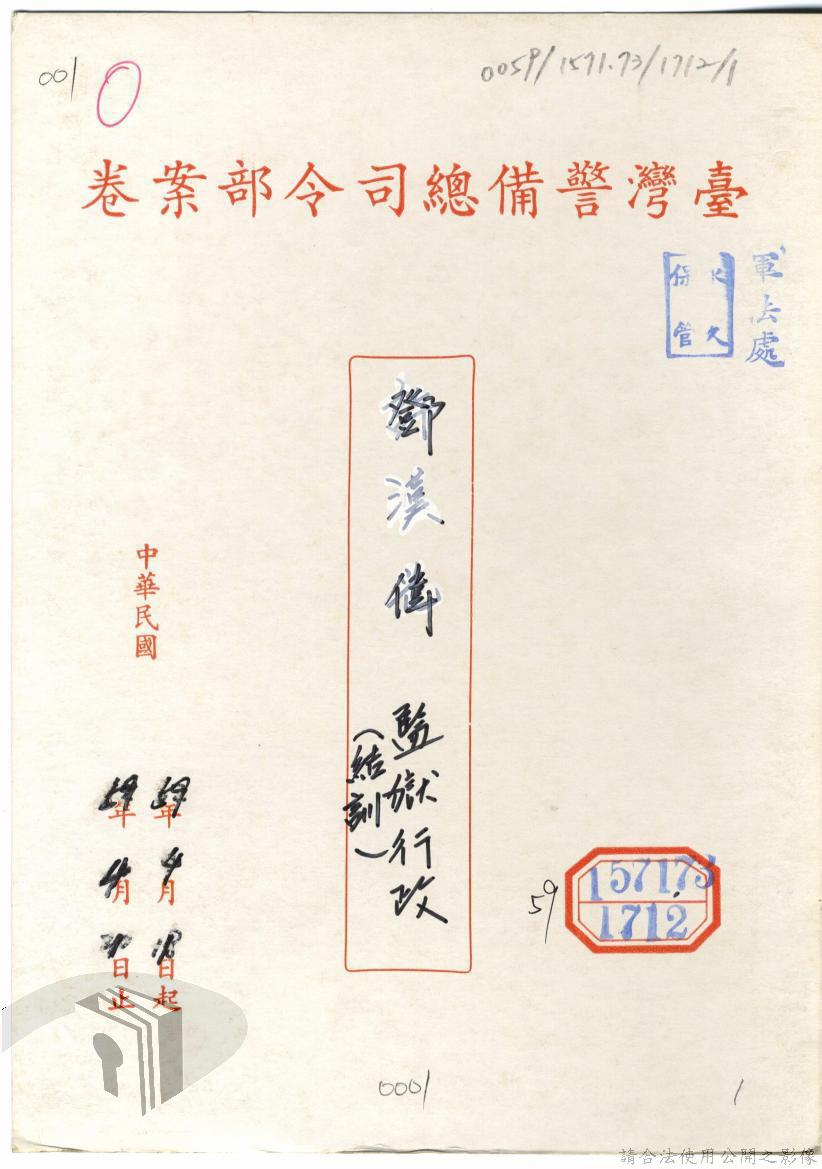 001
0059/1571.73/1712/1
臺灣警備總司令部案卷
軍法處
永久
保管
鄧漢偉 監獄行政
（結訓）
中華民國
59年4月18日起
59年4月 日止
59
157173
1712
0001
1
請合法使用公開之影像